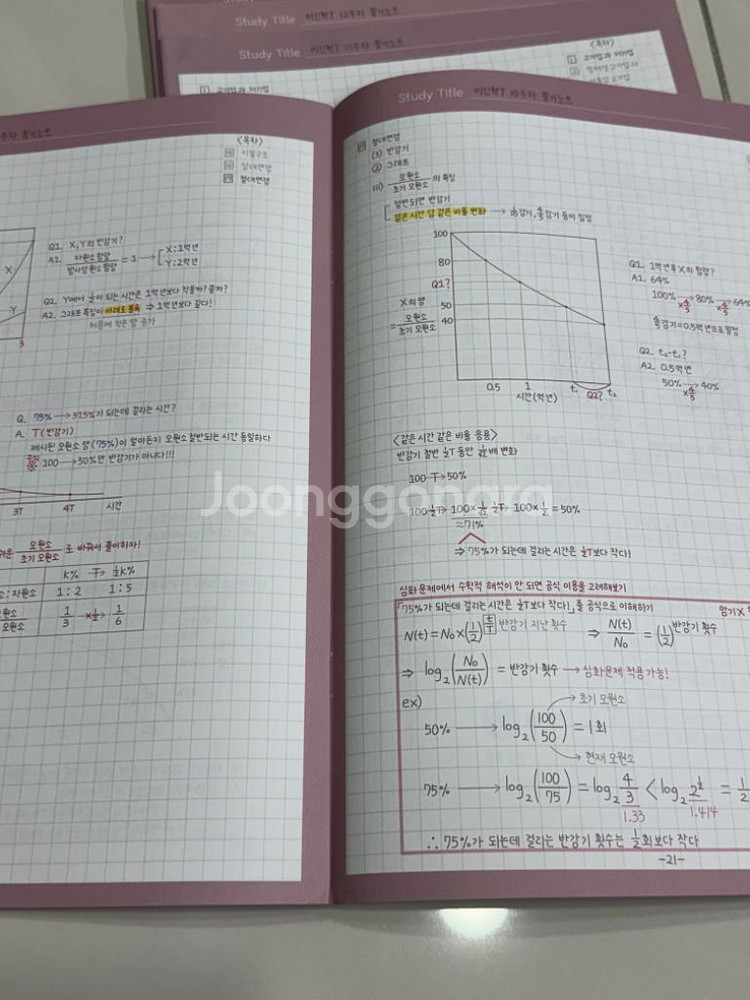 Study Title 이신혁T 12주차 필기노트
Study Title 이신혁T 11주차 필기노트
<목차>
Study Title 이신혁T 10주차 필기노트
<목차>
절대연령
Q1. X, Y의 반감기?
A1. 자원소함량/방사성원소함량 = 1 → X:1억년
Y:2억년
A2. 그래프 특징이 아래로 볼록 ⇒ 1억년보다 짧다!
처음에 작은 양 증가
X
Y
3
Q. 75% → 37.5%가 되는데 걸리는 시간?
A. T(반감기)
제시된 모원소 양(75%)이 얼마든지 모원소 절반되는 시간 동일하다
100 → 50%만 반감기가 아니다!!!
3T 4T 시간
모원소/초기 모원소 로 바꿔서 풀이하자!
k% T→ ½k%
모원소:자원소 1:2 1:5
모원소 1/3 ×½→ 1/6
절대연령
(1) 반감기
② 그래프
모원소/초기 모원소 의 특징
절반되면 반감기
같은 시간 당 같은 비율 변화
100
80
Q1?
50
40
X의 양
= 모원소/초기 모원소
0.5 1 t₁ Q2? t₂
시간(억년)
Q1. 1억년 후 X의 함량?
A1. 64%
100% ×4/5→ 80% ×4/5→ 64%
Q2. t₂-t₁?
A2. 0.5억년
50% ×4/5→ 40%
<같은 시간 같은 비율 응용>
반감기 절반 ½T 동안 1/√2배 변화
100 T→ 50%
100 ½T→ 100×1/√2 ½T→ 100×½ = 50%
≈71%
⇒ 75%가 되는데 걸리는 시간은 ½T보다 작다!
심화 문제에서 수학적 해석이 안 되면 공식 이용을 고려해보기
「75%가 되는데 걸리는 시간은 ½T보다 작다!」를 공식으로 이해하기 암기X
N(t) = N₀×(1/2)^(t/T) 반감기 지난 횟수 ⇒ N(t)/N₀ = (1/2)^반감기 횟수
⇒ log₂(N₀/N(t)) = 반감기 횟수 → 심화문제 적용 가능!
ex)
초기 모원소
50% → log₂(100/50) = 1회
현재 모원소
75% → log₂(100/75) = log₂ 4/3 < log₂ 2^½ = 1/2
1.33 1.414
∴ 75%가 되는데 걸리는 반감기 횟수는 ½회보다 작다
-21-
Joonggonara